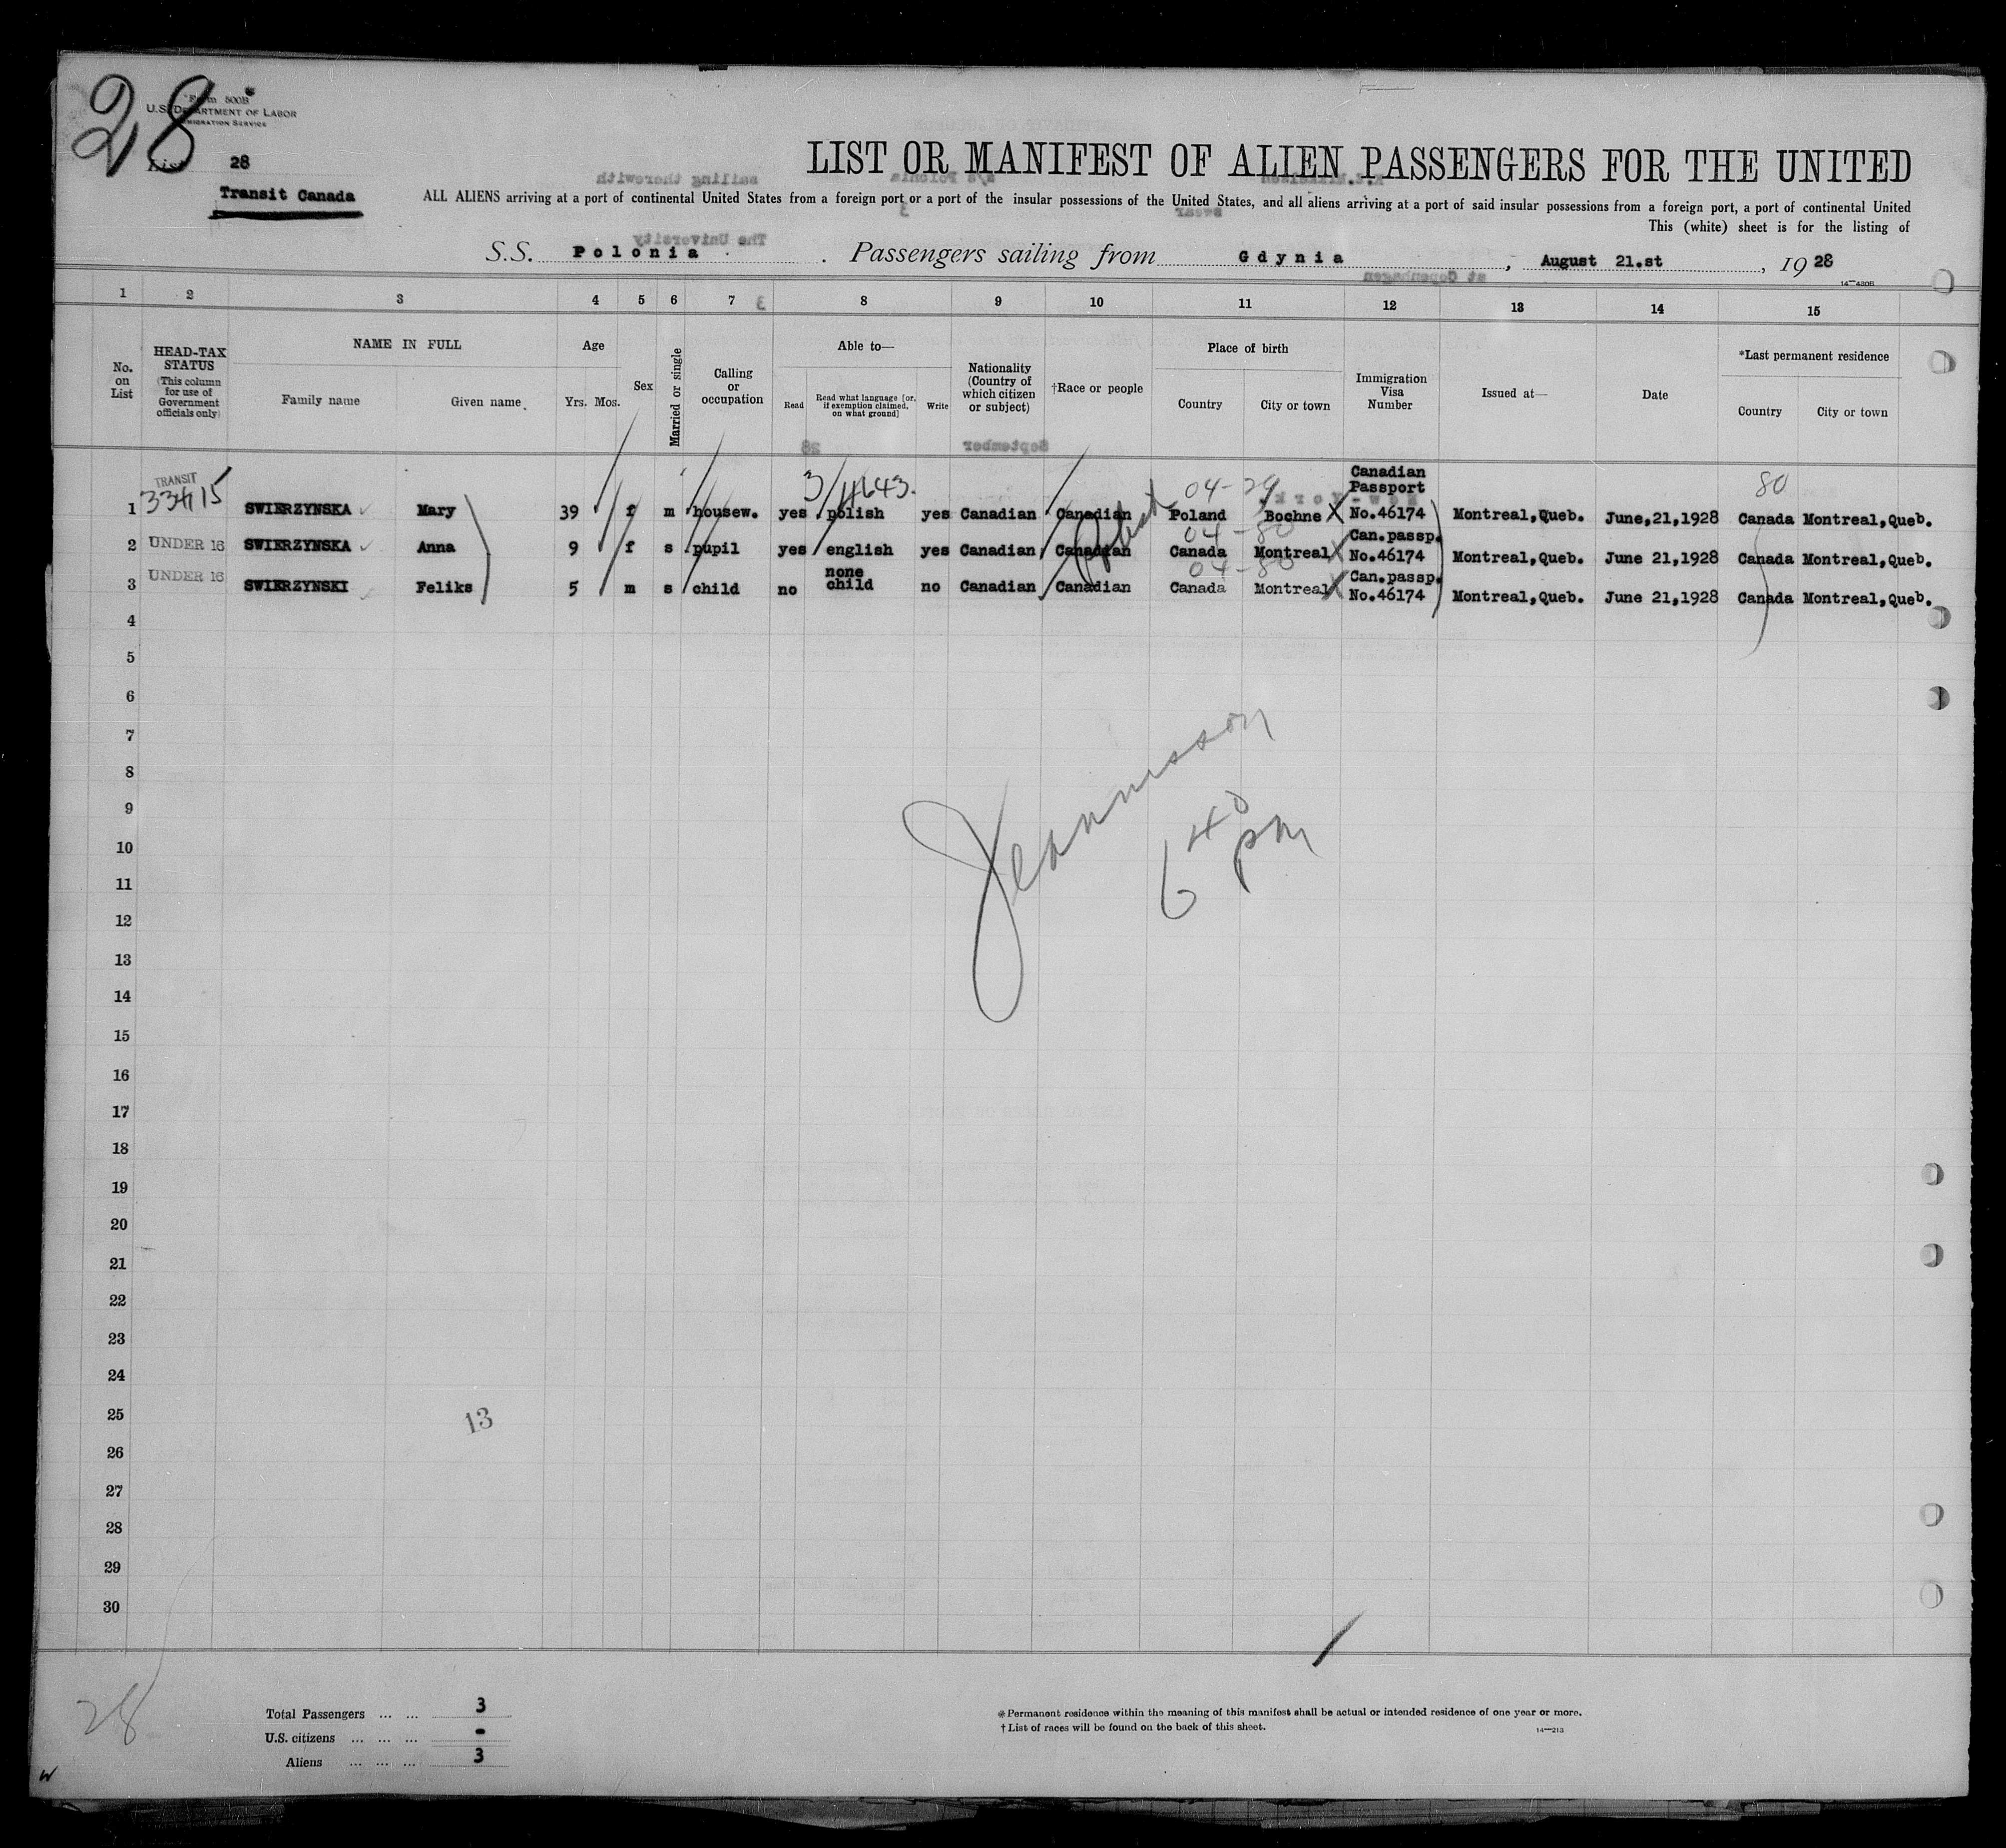 28
Form 500B
U.S. DEPARTMENT OF LABOR
IMMIGRATION SERVICE
List 28
Transit Canada
LIST OR MANIFEST OF ALIEN PASSENGERS FOR THE UNITED
ALL ALIENS arriving at a port of continental United States from a foreign port or a port of the insular possessions of the United States, and all aliens arriving at a port of said insular possessions from a foreign port, a port of continental United
This (white) sheet is for the listing of
S.S. Polonia. Passengers sailing from Gdynia, August 21.st, 1928
14—430B
1 2 3 4 5 6 7 8 9 10 11 12 13 14 15
No. on List
HEAD-TAX STATUS
(This column for use of Government officials only)
NAME IN FULL
Family name Given name
Age
Yrs. Mos.
Sex
Married or single
Calling or occupation
Able to—
Read
Read what language [or, if exemption claimed, on what ground]
Write
Nationality (Country of which citizen or subject)
†Race or people
Place of birth
Country City or town
Immigration Visa Number
Issued at—
Date
*Last permanent residence
Country City or town
TRANSIT
3/4643. 04-29 Canadian Passport 80
1 33415 SWIERZYNSKA Mary 39 f m housew. yes polish yes Canadian Canadian Poland Bochne No.46174 Montreal,Queb. June,21,1928 Canada Montreal,Queb.
04-80 Can.passp.
2 UNDER 16 SWIERZYNSKA Anna 9 f s pupil yes english yes Canadian Canadian Canada Montreal No.46174 Montreal,Queb. June 21,1928 Canada Montreal,Queb.
none 04-80 Can.passp.
3 UNDER 16 SWIERZYNSKI Feliks 5 m s child no child no Canadian Canadian Canada Montreal No.46174 Montreal,Queb. June 21,1928 Canada Montreal,Queb.
4
5
6
7
8
9
10
11
12
13
14
15
16
17
18
19
20
21
22
23
24
25
26
27
28
29
30
6 40 pm
13
28
Total Passengers ... ... 3
U.S. citizens ... ... ... -
Aliens ... ... ... 3
* Permanent residence within the meaning of this manifest shall be actual or intended residence of one year or more.
† List of races will be found on the back of this sheet.
14—213
W